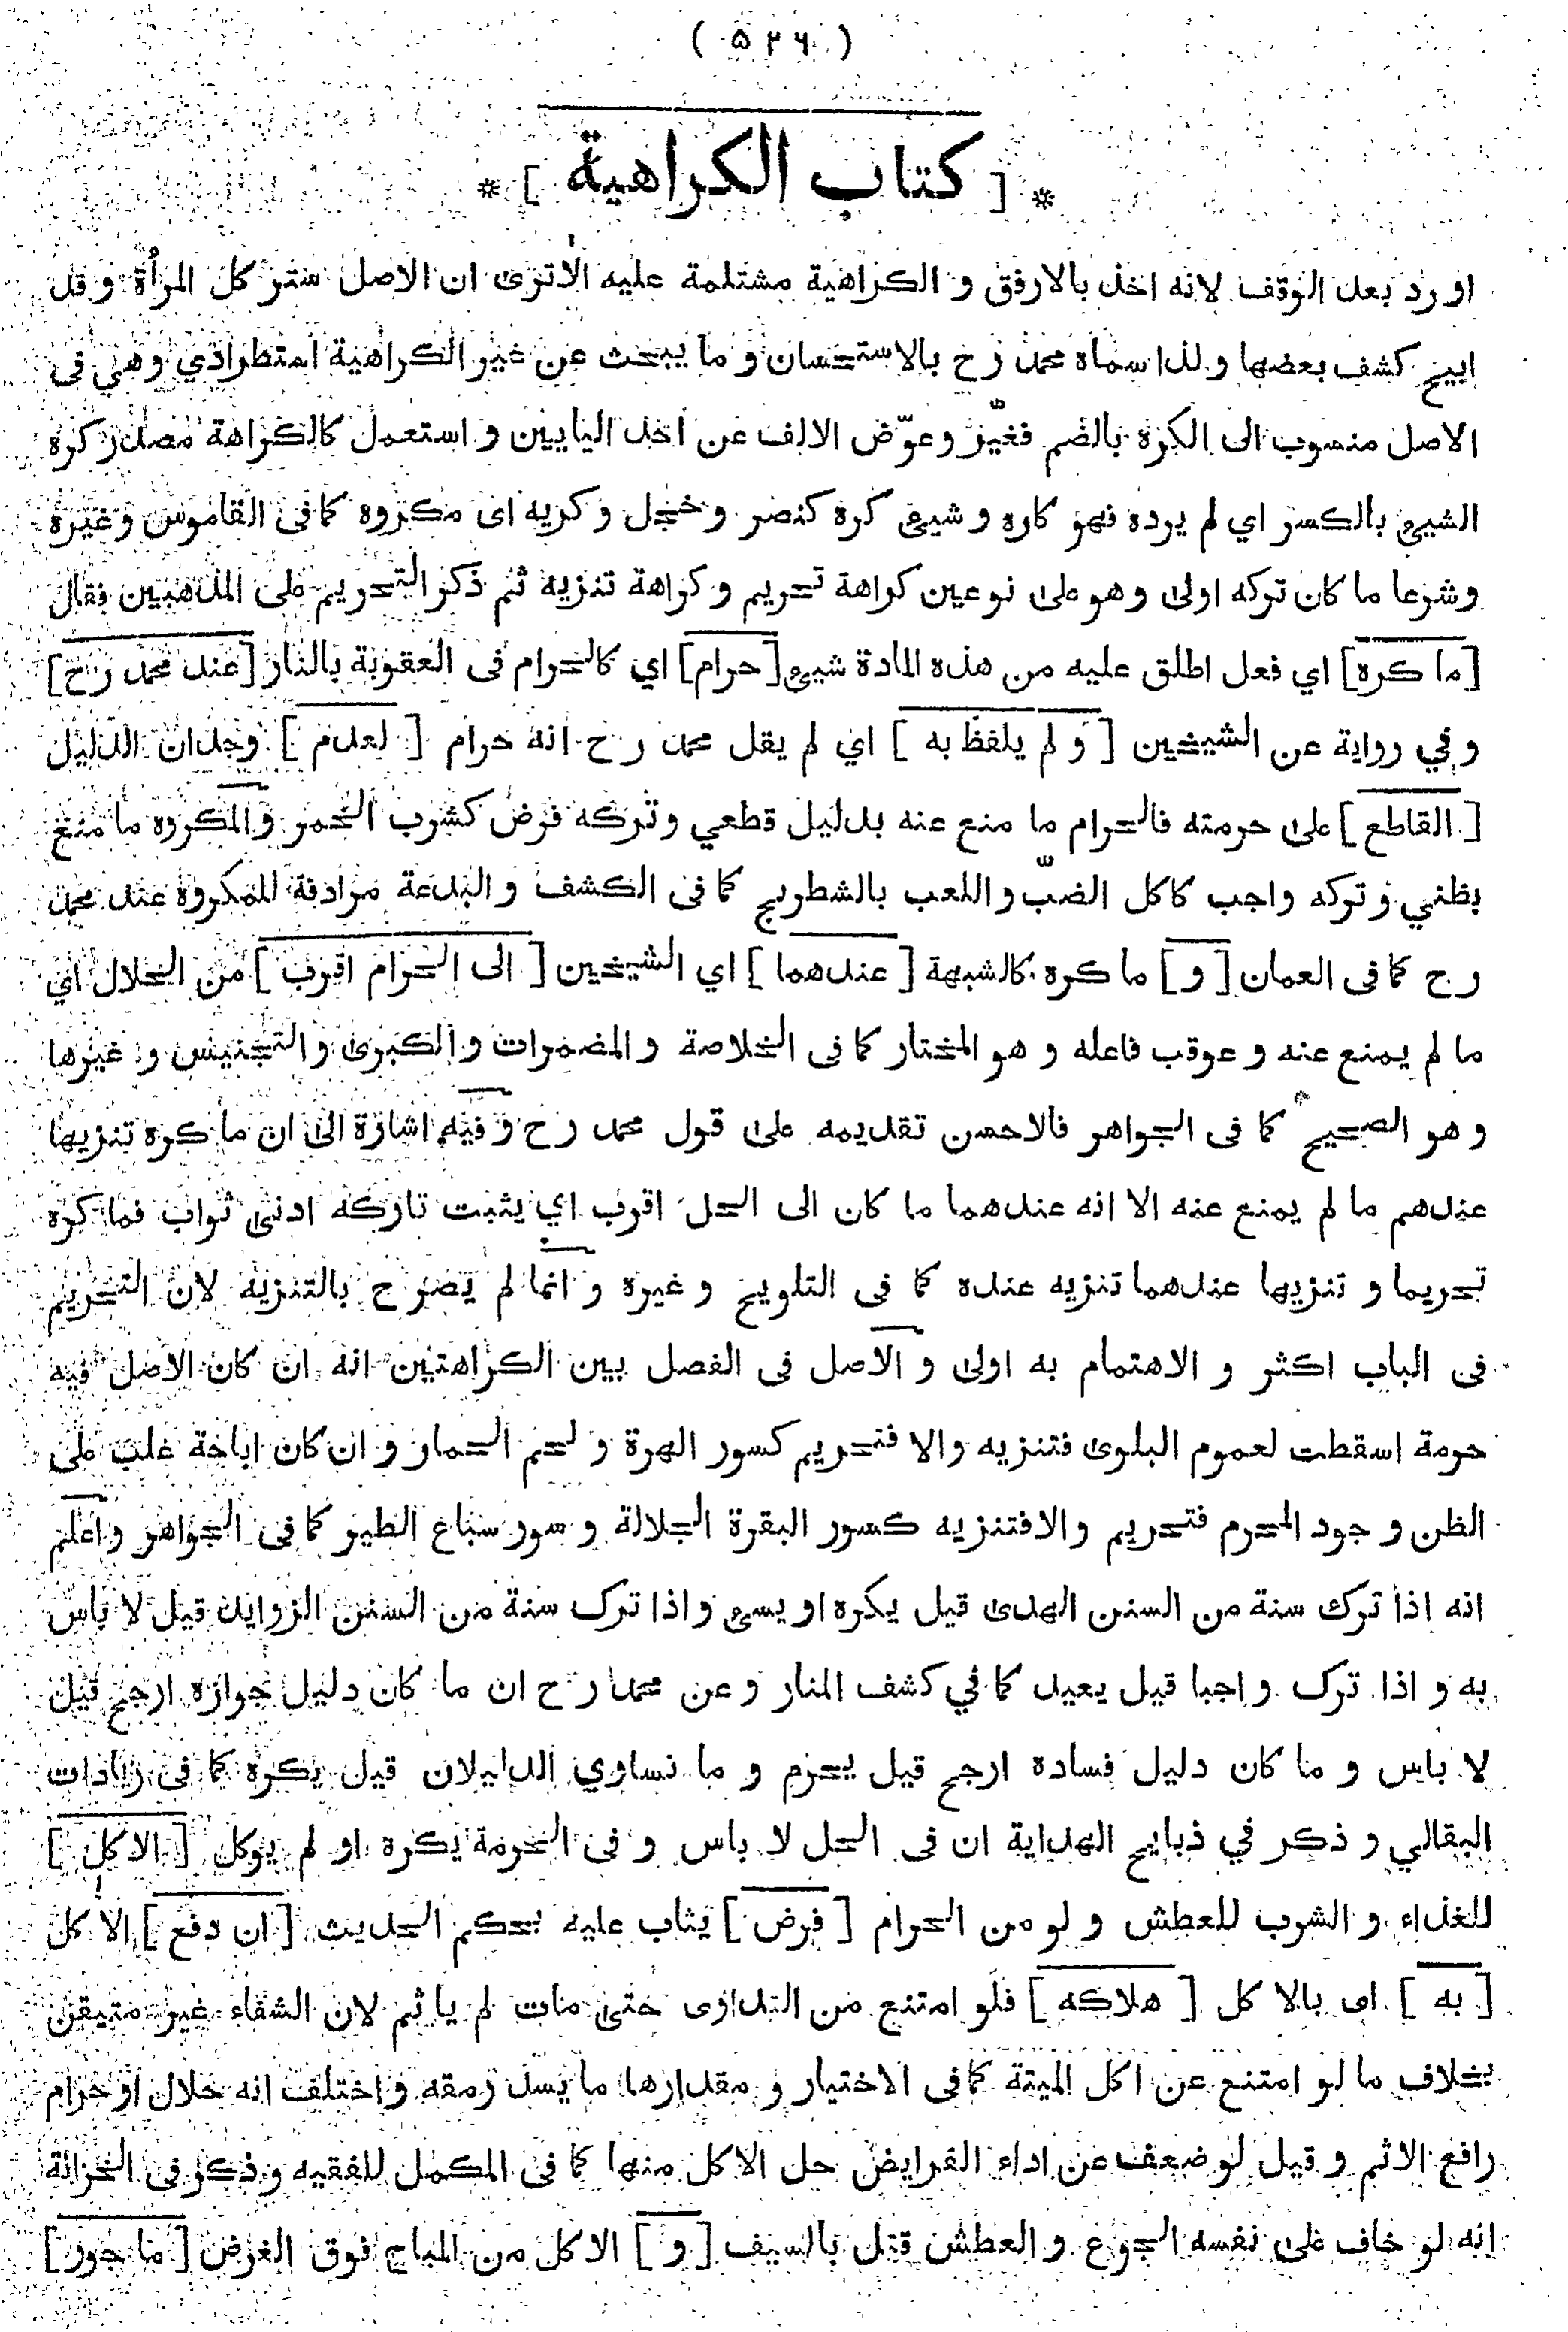 ( ۵۲۶ )
* [ كتاب الكراهية ] *
اورد بعد الوقف لانه اخذ بالارفق و الكراهية مشتلمة عليه الاترى ان الاصل ستر كل المرأة و قد
ابيح كشف بعضها ولذا سماه محمد رح بالاستحسان و ما يبحث عن غير الكراهية استطرادي وهي فى
الاصل منسوب الى الكره بالضم فغيّر وعوّض الالف عن احد اليايين و استعمل كالكراهة مصدر كره
الشيئ بالكسر اي لم يرده فهو كاره و شيئ كره كنصر و خجل و كريه اى مكروه كما فى القاموس وغيره
وشرعا ما كان تركه اولى وهو على نوعين كراهة تحريم و كراهة تنزيه ثم ذكر التحريم على المذهبين فقال
[ما كره] اي فعل اطلق عليه من هذه المادة شيئ [حرام] اي كالحرام فى العقوبة بالنار [عند محمد رح]
و في رواية عن الشيخين [ و لم يلفظ به ] اي لم يقل محمد رح انه حرام [ لعدم ] وجدان الدليل
[ القاطع ] على حرمته فالحرام ما منع عنه بدليل قطعي وتركه فرض كشرب الخمر والمكروه ما منع
بظني و تركه واجب كاكل الضبّ و اللعب بالشطرنج كما فى الكشف و البدعة مرادفة للمكروه عند محمد
رح كما فى العمان [ و ] ما كره كالشبهة [ عندهما ] اي الشيخين [ الى الحرام اقرب ] من الحلال اي
ما لم يمنع عنه و عوقب فاعله و هو المختار كما فى الخلاصة و المضمرات و الكبرى و التجنيس و غيرها
و هو الصحيح كما فى الجواهر فالاحسن تقديمه على قول محمد رح و فيه اشارة الى ان ما كره تنزيها
عندهم ما لم يمنع عنه الا انه عندهما ما كان الى الحل اقرب اي يثبت تاركه ادنى ثواب فما كره
تحريما و تنزيها عندهما تنزيه عنده كما فى التلويح و غيره و انما لم يصرح بالتنزيه لان التحريم
فى الباب اكثر و الاهتمام به اولى و الاصل فى الفصل بين الكراهتين انه ان كان الاصل فيه
حرمة اسقطت لعموم البلوى فتنزيه والا فتحريم كسور الهرة و لحم الحمار و ان كان اباحة غلب على
الظن و جود المحرم فتحريم والافتنزيه كسور البقرة الجلالة و سور سباع الطير كما فى الجواهر واعلم
انه اذا ترك سنة من السنن الهدى قيل يكره او يسئ واذا ترك سنة من السنن الزوايد قيل لا باس
به و اذا ترك واجبا قيل يعيد كما في كشف المنار و عن محمد رح ان ما كان دليل جوازه ارجح قيل
لا باس و ما كان دليل فساده ارجح قيل يحرم و ما تساوي الدليلان قيل يكره كما فى زيادات
البقالي و ذكر في ذبايح الهداية ان فى الحل لا باس و فى الحرمة يكره او لم يوكل [ الاكل ]
للغذاء و الشرب للعطش و لو من الحرام [ فرض ] يثاب عليه بحكم الحديث [ ان دفع ] الاكل
[ به ] اى بالاكل [ هلاكه ] فلو امتنع من التداوى حتى مات لم ياثم لان الشفاء غير متيقن
بخلاف ما لو امتنع عن اكل الميتة كما فى الاختيار و مقدارها ما يسد رمقه و اختلف انه حلال او حرام
رافع الاثم و قيل لو ضعف عن اداء الفرايض حل الاكل منها كما فى المكمل للفقيه وذكر فى الخزانة
انه لو خاف على نفسه الجوع و العطش قتل بالسيف [ و ] الاكل من المباح فوق الغرض [ ما جور ]